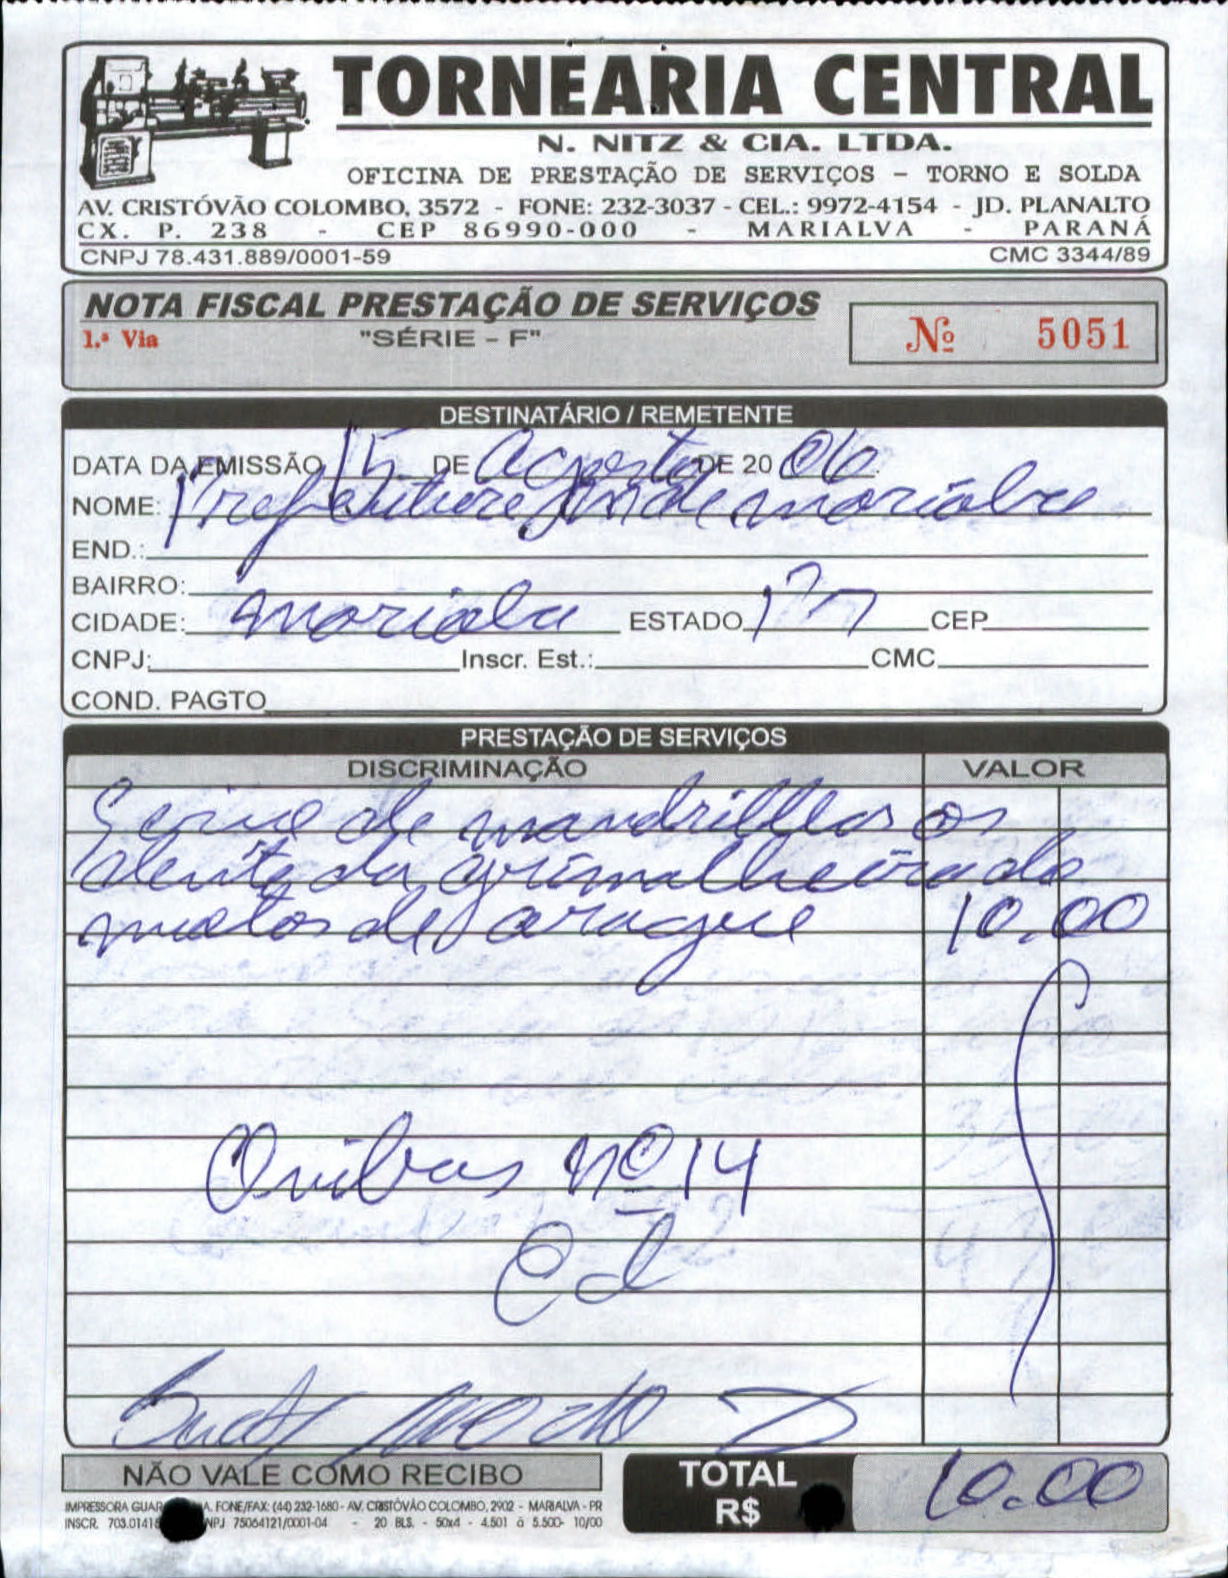 TORNEARIA CENTRAL
N. NITZ & CIA. LTDA.
OFICINA DE PRESTAÇÃO DE SERVIÇOS - TORNO E SOLDA
AV. CRISTÓVÃO COLOMBO, 3572 - FONE: 232-3037 - CEL.: 9972-4154 - JD. PLANALTO
CX. P. 238 - CEP 86990-000 - MARIALVA - PARANÁ
CNPJ 78.431.889/0001-59 CMC 3344/89
NOTA FISCAL PRESTAÇÃO DE SERVIÇOS
1.ª Via "SÉRIE - F" Nº 5051
DESTINATÁRIO / REMETENTE
DATA DA EMISSÃO 15 DE Agosto DE 20 06.
NOME: Prefeitura de marialva
END.:
BAIRRO:
CIDADE: marialva ESTADO Pr CEP
CNPJ: Inscr. Est.: CMC
COND. PAGTO
PRESTAÇÃO DE SERVIÇOS
DISCRIMINAÇÃO VALOR
de os
da do
de 10,00
Onibus nº 14
NÃO VALE COMO RECIBO
TOTAL R$ 10.00
IMPRESSORA FONE/FAX: (44) 232-1680 - AV. CRISTÓVÃO COLOMBO, 2902 - MARIALVA - PR
INSCR. 75064121/0001-04 - 20 BLS. - 50x4 - 4.501 à 5.500- 10/00